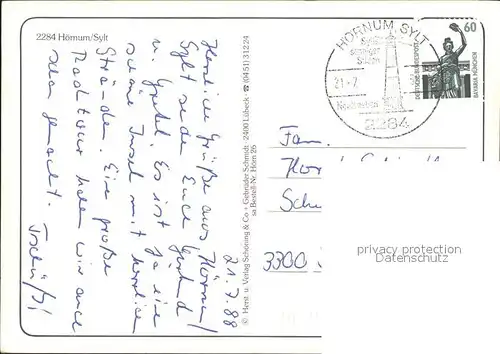 2284 Hörnum/Sylt
21.7.88
Herzliche Grüße aus Hörnum/
Sylt sendet Euch Gerhard
u. Gretel. Es ist ja eine
schöne Insel mit herrlichen
Stränden. Eine große
Radtour haben wir auch
schon gemacht. Tschüß!
© Herst. u. Verlag Schöning & Co + Gebrüder Schmidt · 2400 Lübeck ☎ (04 51) 31 2 24
sa Bestell-Nr. Hörn 26
HÖRNUM, SYLT
21.-7.
2284
60
DEUTSCHE BUNDESPOST
BAVARIA MÜNCHEN
Fam.
3300
privacy protection
Datenschutz